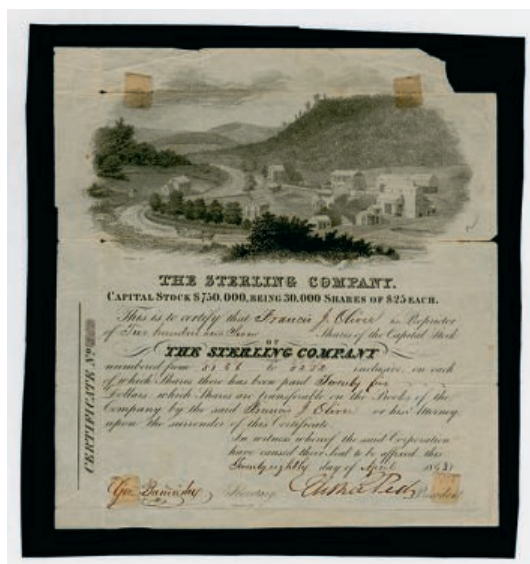 THE STERLING COMPANY.
CAPITAL STOCK $750,000, BEING 30,000 SHARES OF $25 EACH.
This is to certify that Francis J. Oliver is Proprietor
of Two hundred and Shares of the Capital Stock
OF
THE STERLING COMPANY
numbered from to inclusive, on each
of which Shares there has been paid Twenty five
Dollars, which Shares are transferable on the Books of the
Company by the said Francis J Oliver or his Attorney
upon the surrender of this Certificate.
In witness whereof the said Corporation
have caused their Seal to be affixed, this
Twenty eighth day of April
Secretary President
CERTIFICATE No